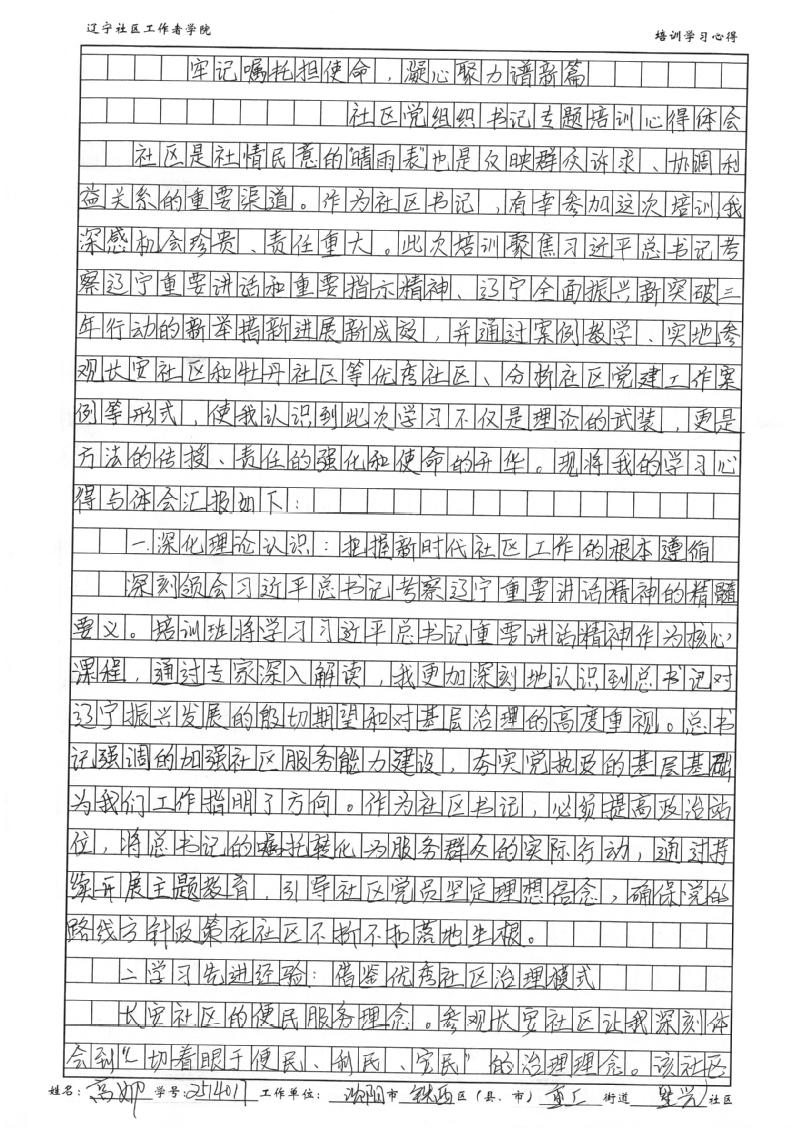 辽宁社区工作者学院 培训学习心得
牢记嘱托担使命，凝心聚力谱新篇
社区党组织书记专题培训心得体会
社区是社情民意的“晴雨表”也是反映群众诉求、协调利
益关系的重要渠道。作为社区书记，有幸参加这次培训，我
深感机会珍贵、责任重大。此次培训聚焦习近平总书记考
察辽宁重要讲话和重要指示精神、辽宁全面振兴新突破三
年行动的新举措新进展新成效，并通过案例教学、实地参
观长安社区和牡丹社区等优秀社区、分析社区党建工作案
例等形式，使我认识到此次学习不仅是理论的武装，更是
方法的传授、责任的强化和使命的升华。现将我的学习心
得与体会汇报如下：
一.深化理论认识：把握新时代社区工作的根本遵循
深刻领会习近平总书记考察辽宁重要讲话精神的精髓
要义。培训班将学习习近平总书记重要讲话精神作为核心
课程，通过专家深入解读，我更加深刻地认识到总书记对
辽宁振兴发展的殷切期望和对基层治理的高度重视。总书
记强调的加强社区服务能力建设，夯实党执政的基层基础
为我们工作指明了方向。作为社区书记，必须提高政治站
位，将总书记的嘱托转化为服务群众的实际行动，通过持
续开展主题教育，引导社区党员坚定理想信念，确保党的
路线方针政策在社区不折不扣落地生根。
二.学习先进经验：借鉴优秀社区治理模式
长安社区的便民服务理念。参观长安社区让我深刻体
会到“一切着眼于便民、利民、安民”的治理理念。该社区
姓名：高娜 学号：251401 工作单位：沈阳市 铁西区（县、市） 重工 街道 社区